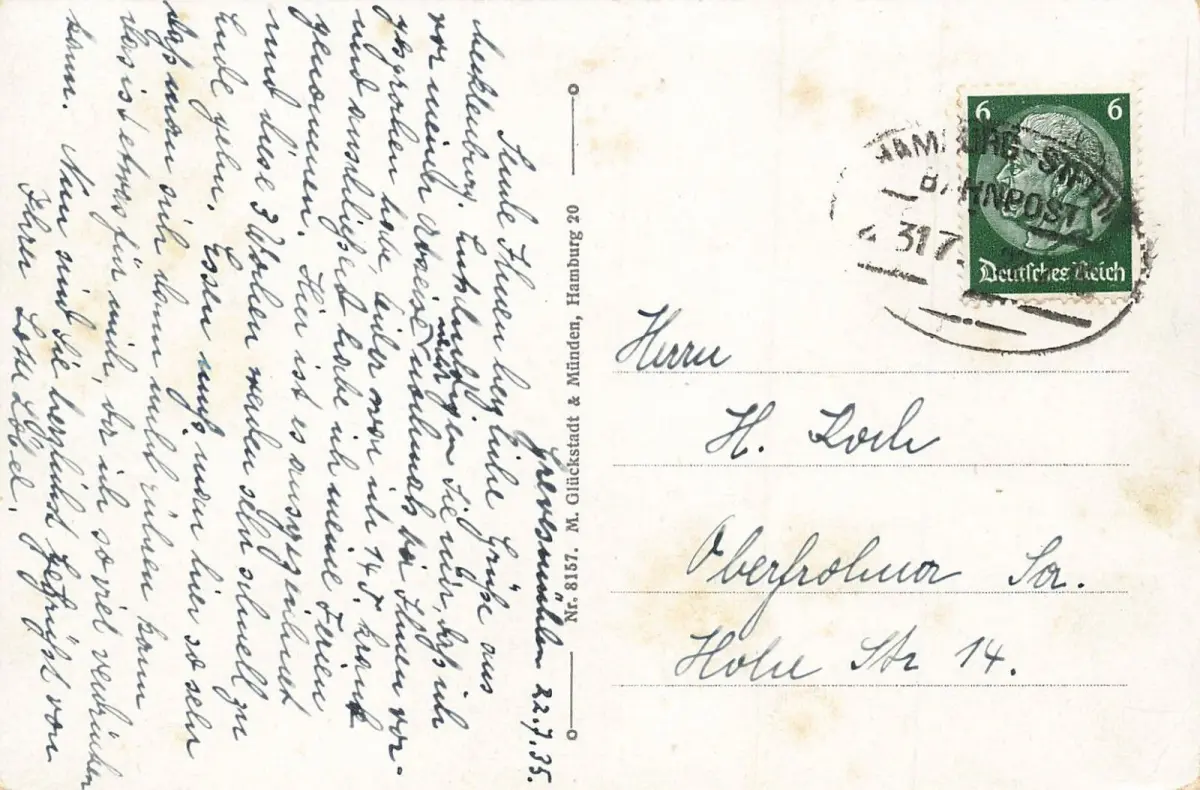 Grevesmühlen 22.7.35.
Sende Ihnen herzliche Grüße aus
Mecklenburg. Entschuldigen Sie mir, daß ich
vor meiner Abreise nicht nochmals bei Ihnen vor-
gesprochen habe, leider war ich 14 T. krank
und anschließend habe ich meine Ferien
genommen. Hier ist es ausgezeichnet
und diese 3 Wochen werden sehr schnell zu
Ende gehn. Essen muß man hier so sehr
daß man sich dann nicht rühren kann
das ist etwas für mich, da ich so viel verdrücken
kann. Nun sind Sie herzlichst gegrüßt von
Ihrer Lotte
Nr. 8157. M. Glückstadt & Münden, Hamburg 20
6 6
Deutsches Reich
HAMBURG-
BAHNPOST
31 7
Herrn
H. Koch
Oberfrohna Sa.
Hohe Str 14.